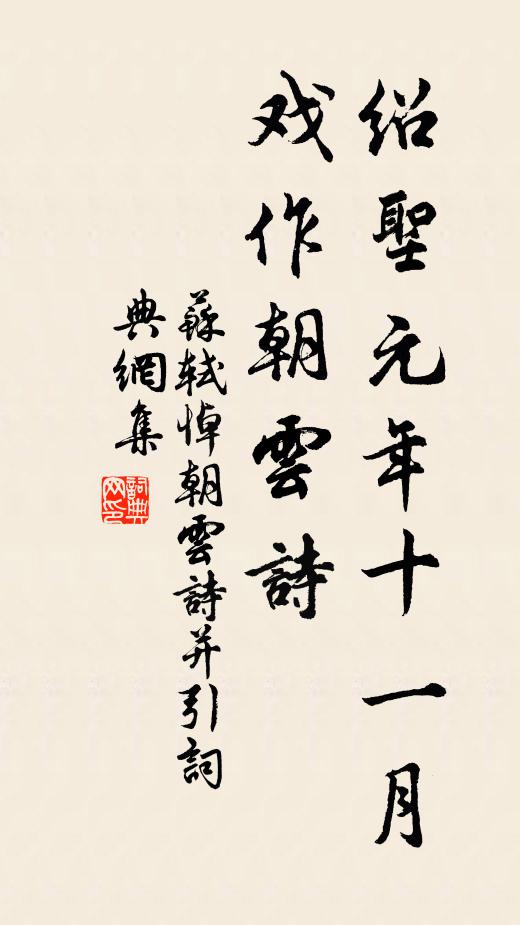 绍聖元年十一月
戏作朝雲詩
蘇軾悼朝雲詩并引詞
典網集
詞典网印